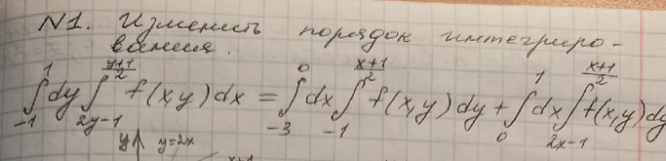 N1. Изменить порядок интегриро-
вания.
∫_{-1}^{1} dy ∫_{2y-1}^{(y+1)/2} f(x,y) dx = ∫_{-3}^{0} dx ∫_{-1}^{(x+1)/2} f(x,y) dy + ∫_{0}^{1} dx ∫_{2x-1}^{(x+1)/2} f(x,y) dy
y y=2x